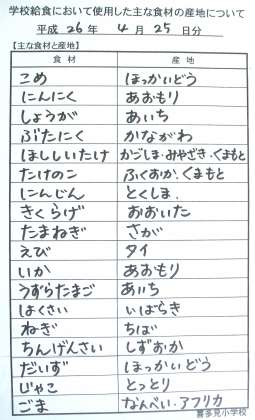 学校給食において使用した主な食材の産地について
平成 26年 4月 25日分
【主な食材と産地】
食材 産地
こめ ほっかいどう
にんにく あおもり
しょうが あいち
ぶたにく かながわ
ほししいたけ かごしま・みやざき・くまもと
たけのこ ふくおか、くまもと
にんじん とくしま、
きくらげ おおいた
たまねぎ さが
えび タイ
いか あおもり
うずらたまご あいち
はくさい いばらき
ねぎ ちば
ちんげんさい しずおか
だいず ほっかいどう
じゃこ とっとり
ごま なんべい・アフリカ
喜多見小学校